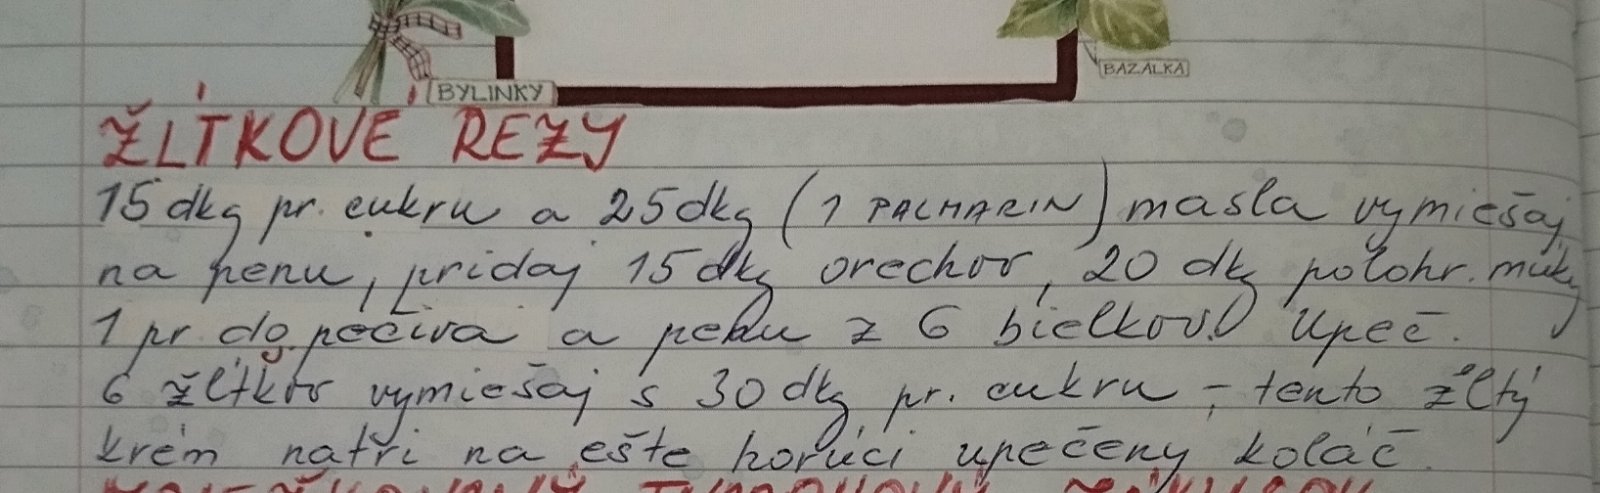 BAZALKA
BYLINKY
ŽĹTKOVÉ REZY
15 dkg pr. cukru a 25 dkg (1 PALMARIN) masla vymiešaj
na penu, pridaj 15 dkg orechov, 20 dkg polohr. múky
1 pr. do pečiva a penu z 6 bielkov! Upeč.
6 žĺtkov vymiešaj s 30 dkg pr. cukru - tento žltý
krém natri na ešte horúci upečený koláč.